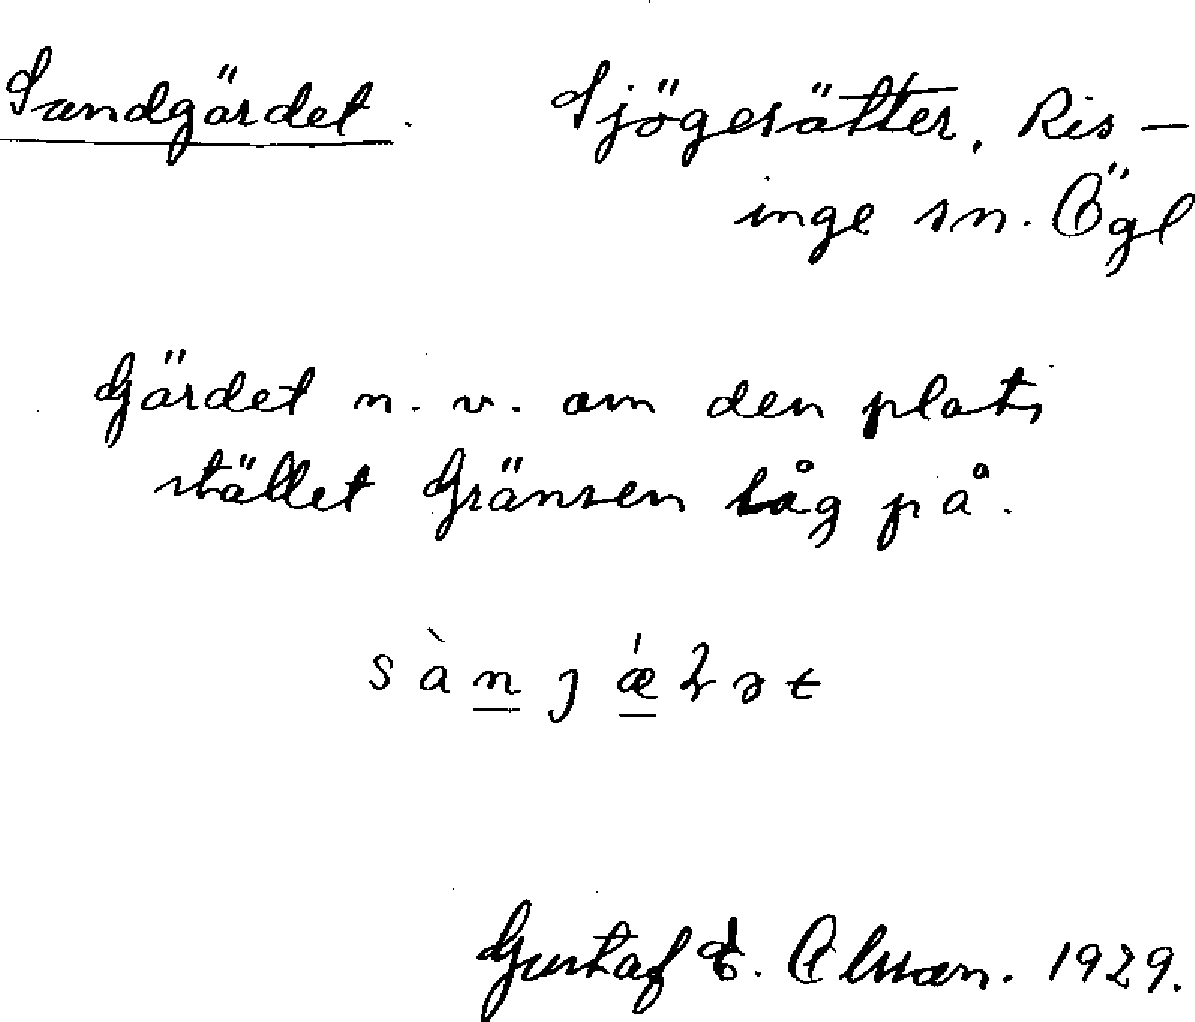 Sandgärdet. Sjögesätter, Ris-
inge sn. Ögl
Gärdet n.v. om den plats
stället Gränsen låg på.
Gustaf E. Olsson. 1929.